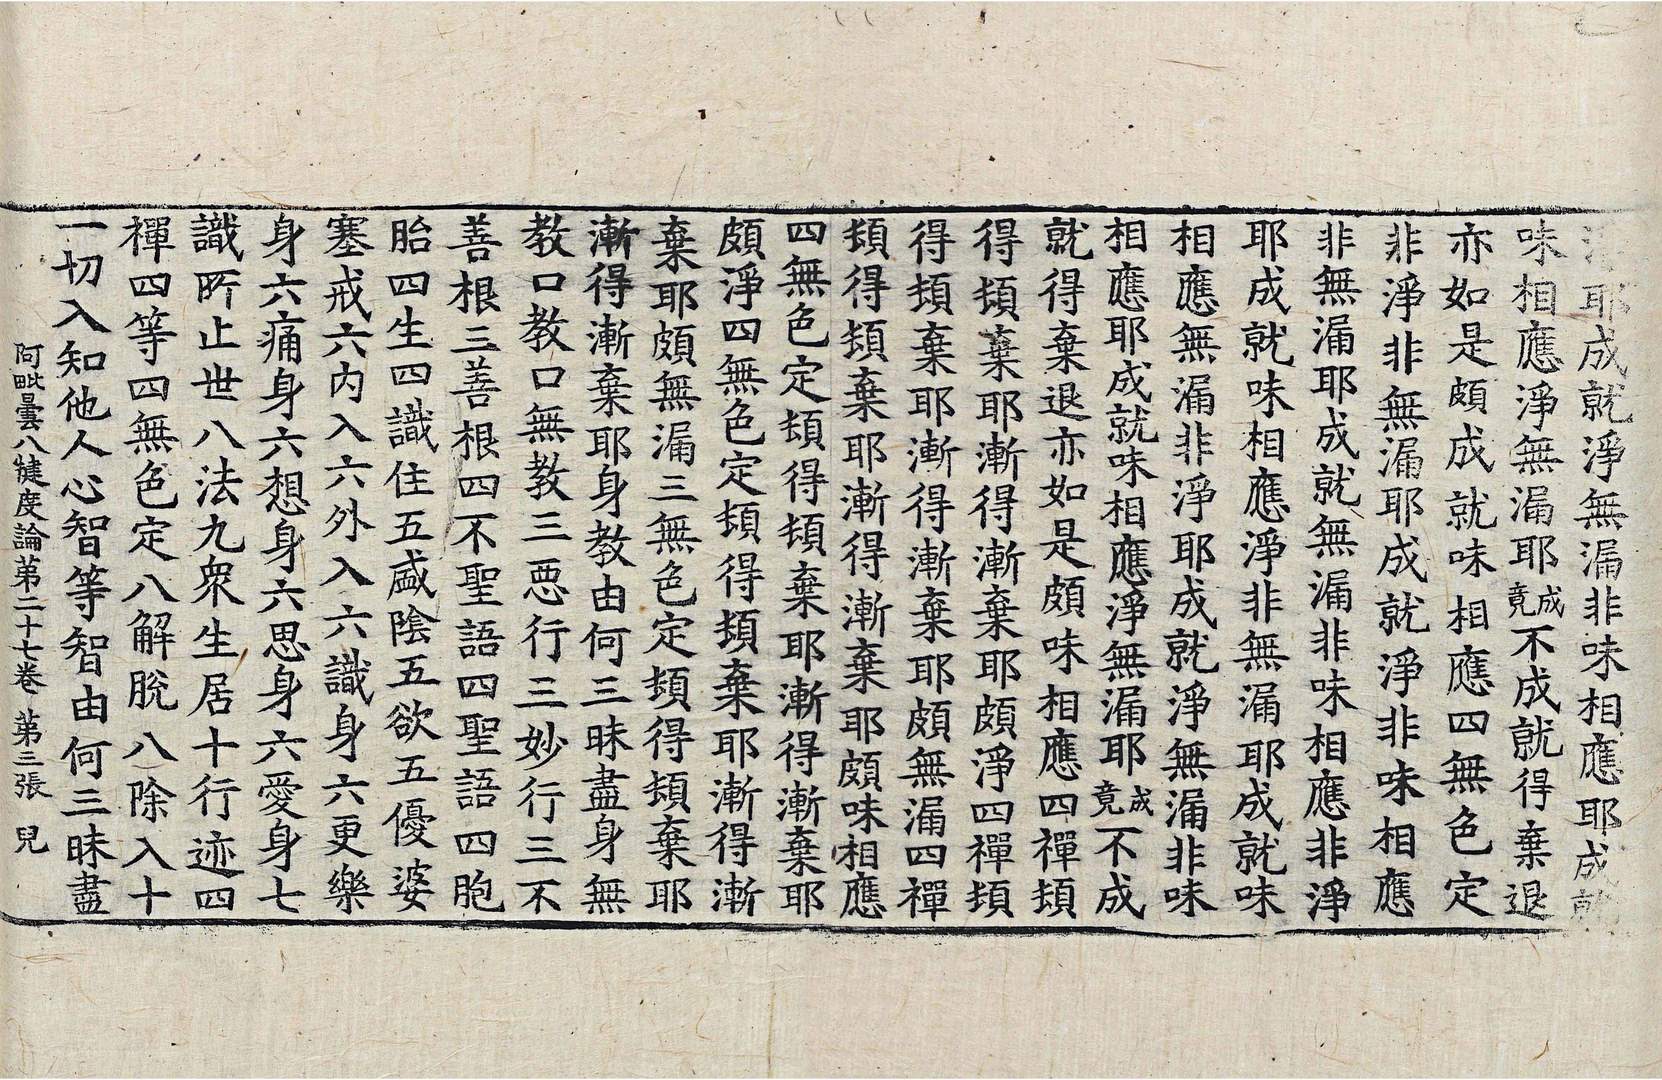 耶成就淨無漏非味相應耶成就
味相應淨無漏耶成竟不成就得棄退
亦如是頗成就味相應四無色定
非淨非無漏耶成就淨非味相應
非無漏耶成就無漏非味相應非淨
耶成就味相應淨非無漏耶成就味
相應無漏非淨耶成就淨無漏非味
相應耶成就味相應淨無漏耶成竟不成
就得棄退亦如是頗味相應四禪頓
得頓棄耶漸得漸棄耶頗淨四禪頓
得頓棄耶漸得漸棄耶頗無漏四禪
頓得頓棄耶漸得漸棄耶頗味相應
四無色定頓得頓棄耶漸得漸棄耶
頗淨四無色定頓得頓棄耶漸得漸
棄耶頗無漏三無色定頓得頓棄耶
漸得漸棄耶身教由何三昧盡身無
教口教口無教三惡行三妙行三不
善根三善根四不聖語四聖語四胞
胎四生四識住五盛陰五欲五優婆
塞戒六內入六外入六識身六更樂
身六痛身六想身六思身六愛身七
識所止世八法九衆生居十行迹四
禪四等四無色定八解脫八除入十
一切入知他人心智等智由何三昧盡
阿毗曇八犍度論第二十七卷 第三張 兒